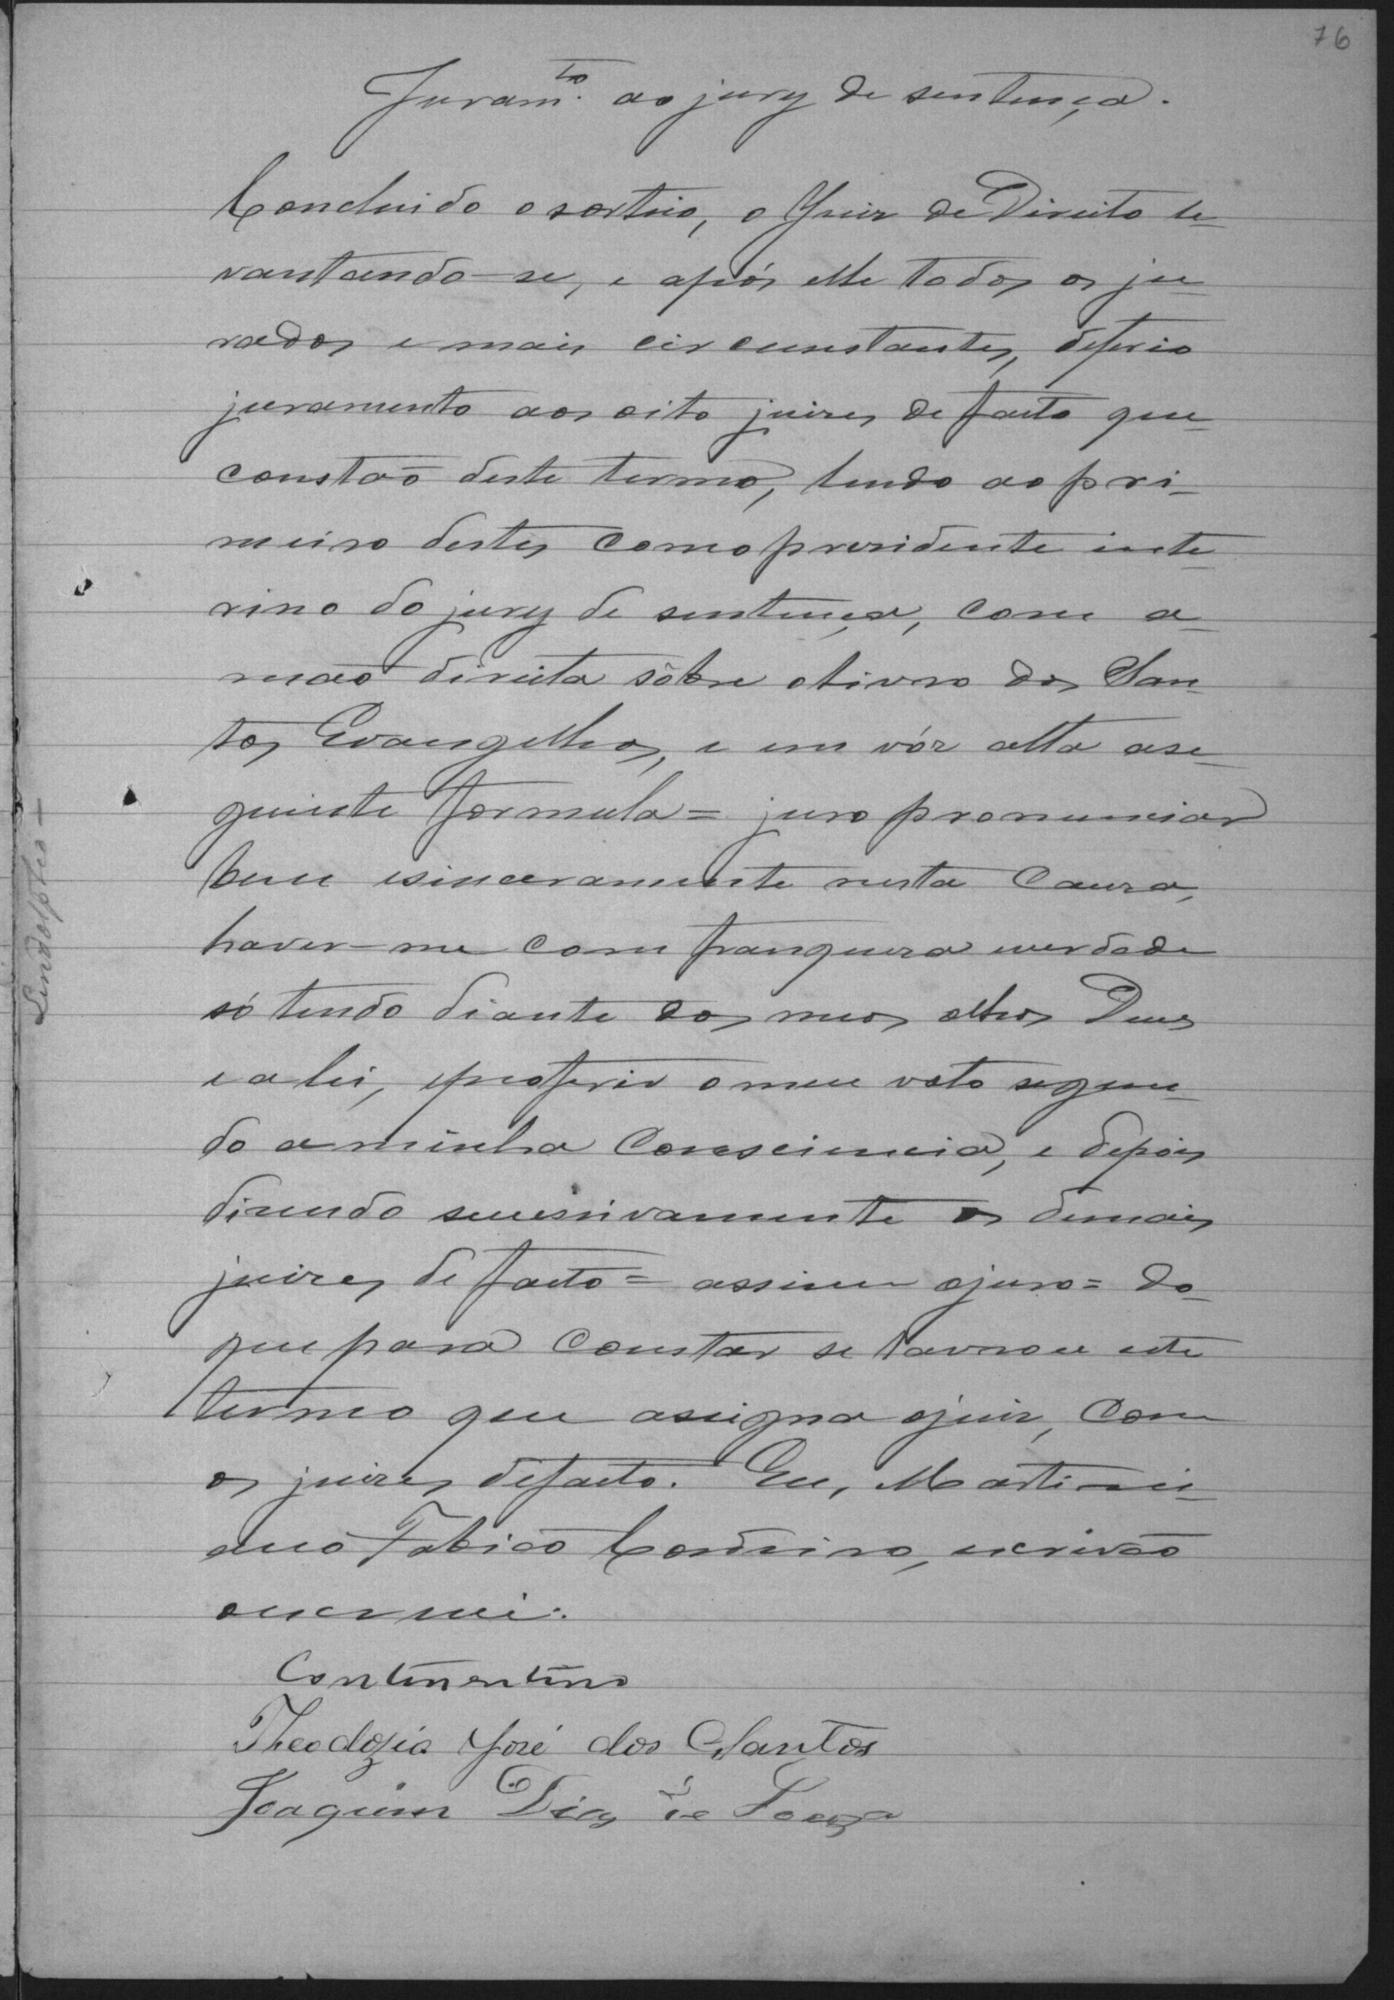 76
Juramto. ao jury de sentença.
Concluido o sorteio, o Juiz de Direito le-
vantando-se, e após elle todos os ju-
rados e mais circumstantes, deferio
juramento aos oito juizes de facto que
constão deste termo, lendo ao pri-
meiro destes como presidente inte-
rino do jury de sentença, com a
mão direita sôbre o livro dos San-
tos Evangelhos, e em vóz alta a se-
guinte formula = juro pronunciar
bem e sinceramente nesta causa,
haver-me com franqueza e verdade
só tendo diante dos meos olhos Deus
e a lei, e proferir o meu voto segun-
do a minha consciencia, e depois
dizendo sucessivamente os demais
juizes de facto = assim o juro = do
que para constar se lavrou este
termo que assigna o juiz, com
os juizes de facto. Eu, Martini-
ano Fabião Cordeiro, escrivão
o escrevi.
Continentino
Theodozio José dos Santos
Joaquim Dias de Souza
Lindolpho -